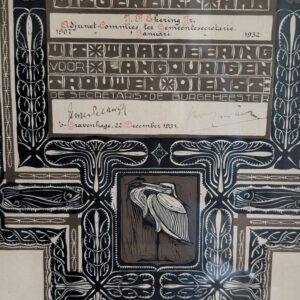 Adjunct-Commies ter Gemeentesecretarie.
1907 1 Januari 1932
UIT WAARDEERING
VOOR LANGDURIGEN
TROUWEN DIENST
DE SECRETARIS DE BURGEMEESTER
's-Gravenhage, 22 December 1931.